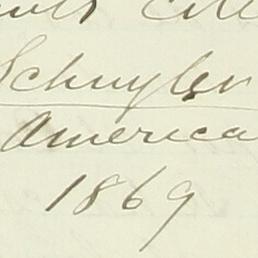 Schuyler
America
1869